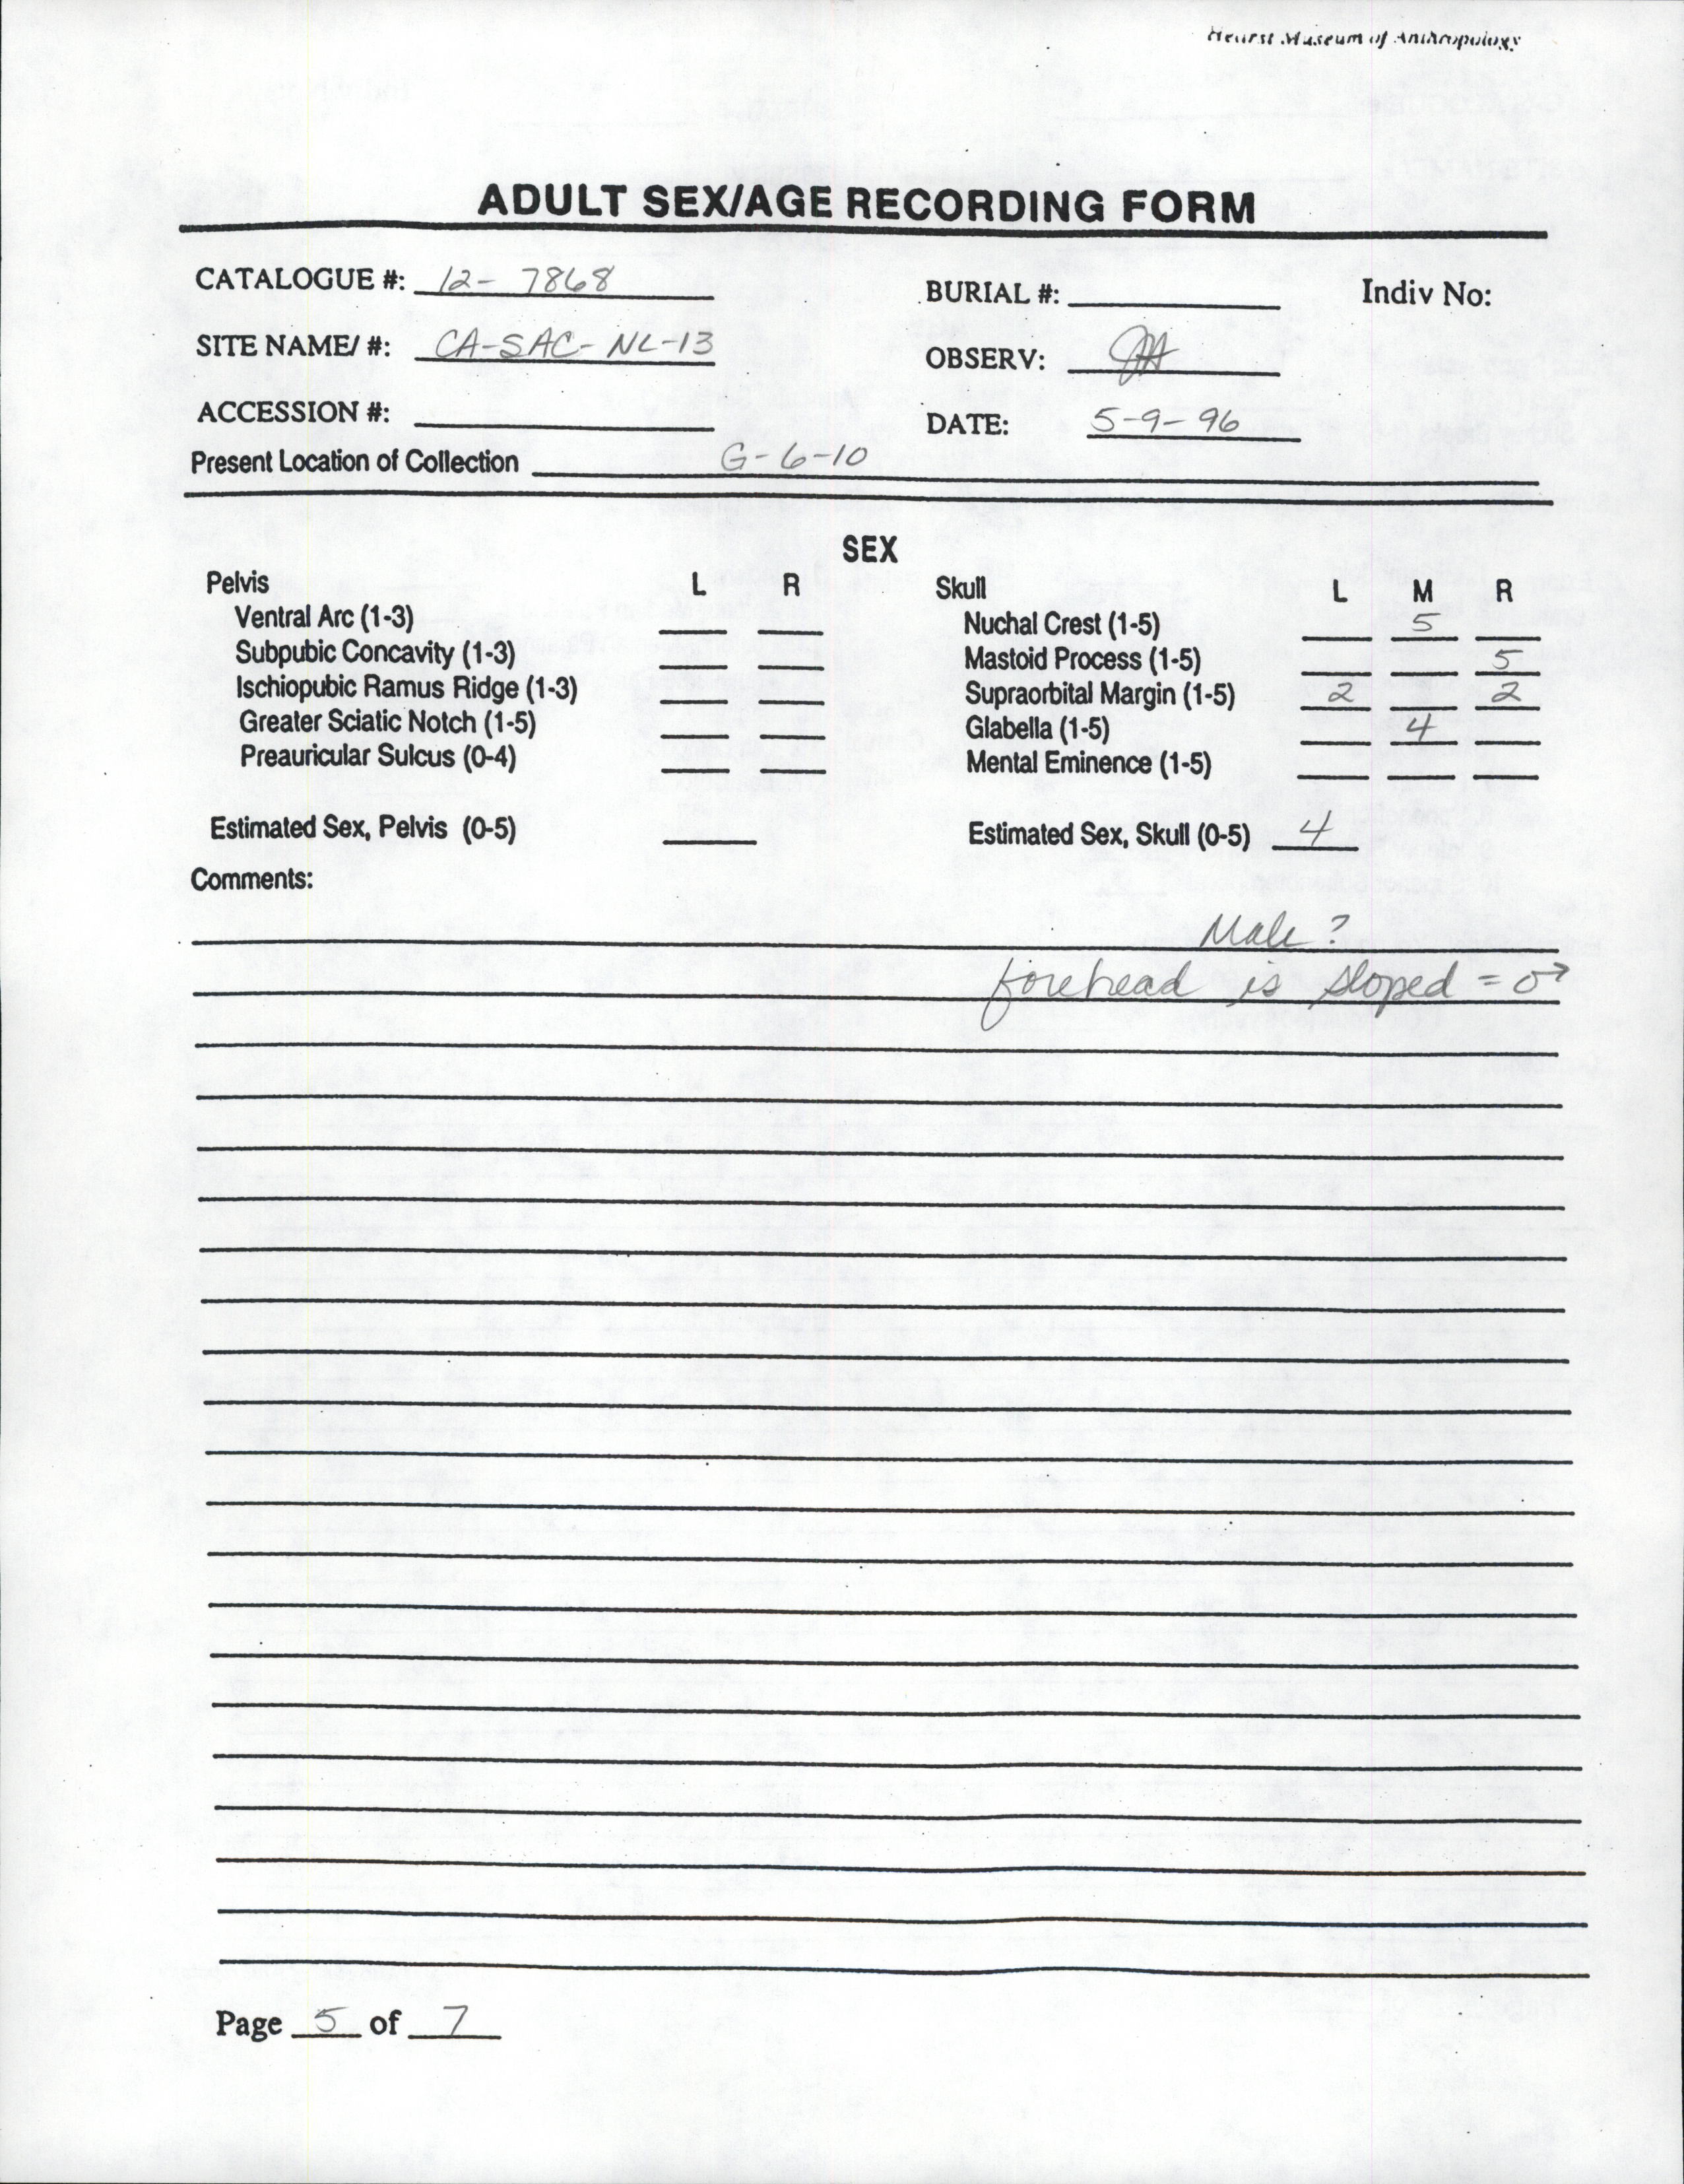 Hearst Museum of Anthropology
ADULT SEX/AGE RECORDING FORM
CATALOGUE #: 12-7868
BURIAL #:
Indiv No:
SITE NAME/ #: CA-SAC-NL-13
OBSERV: JA
ACCESSION #:
DATE: 5-9-96
Present Location of Collection G-6-10
SEX
Pelvis L R
Ventral Arc (1-3)
Subpubic Concavity (1-3)
Ischiopubic Ramus Ridge (1-3)
Greater Sciatic Notch (1-5)
Preauricular Sulcus (0-4)
Estimated Sex, Pelvis (0-5)
Skull L M R
Nuchal Crest (1-5) 5
Mastoid Process (1-5) 5
Supraorbital Margin (1-5) 2 2
Glabella (1-5) 4
Mental Eminence (1-5)
Estimated Sex, Skull (0-5) 4
Comments:
Male?
forehead is sloped = ♂
Page 5 of 7